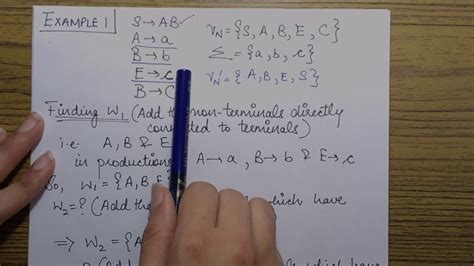 EXAMPLE 1
S→AB ✓
A→a
B→b
E→c
B→C
V_N = {S, A, B, E, C}
Σ = {a, b, c}
V_N' = { A, B, E, S}
Finding W₁ (Add the non-terminals directly
connected to terminals)
i.e A, B & E
in production A→a , B→b & E→c
So, W₁ = {A, B, E
W₂ = ? (Add the which have
⇒ W₂ = {A